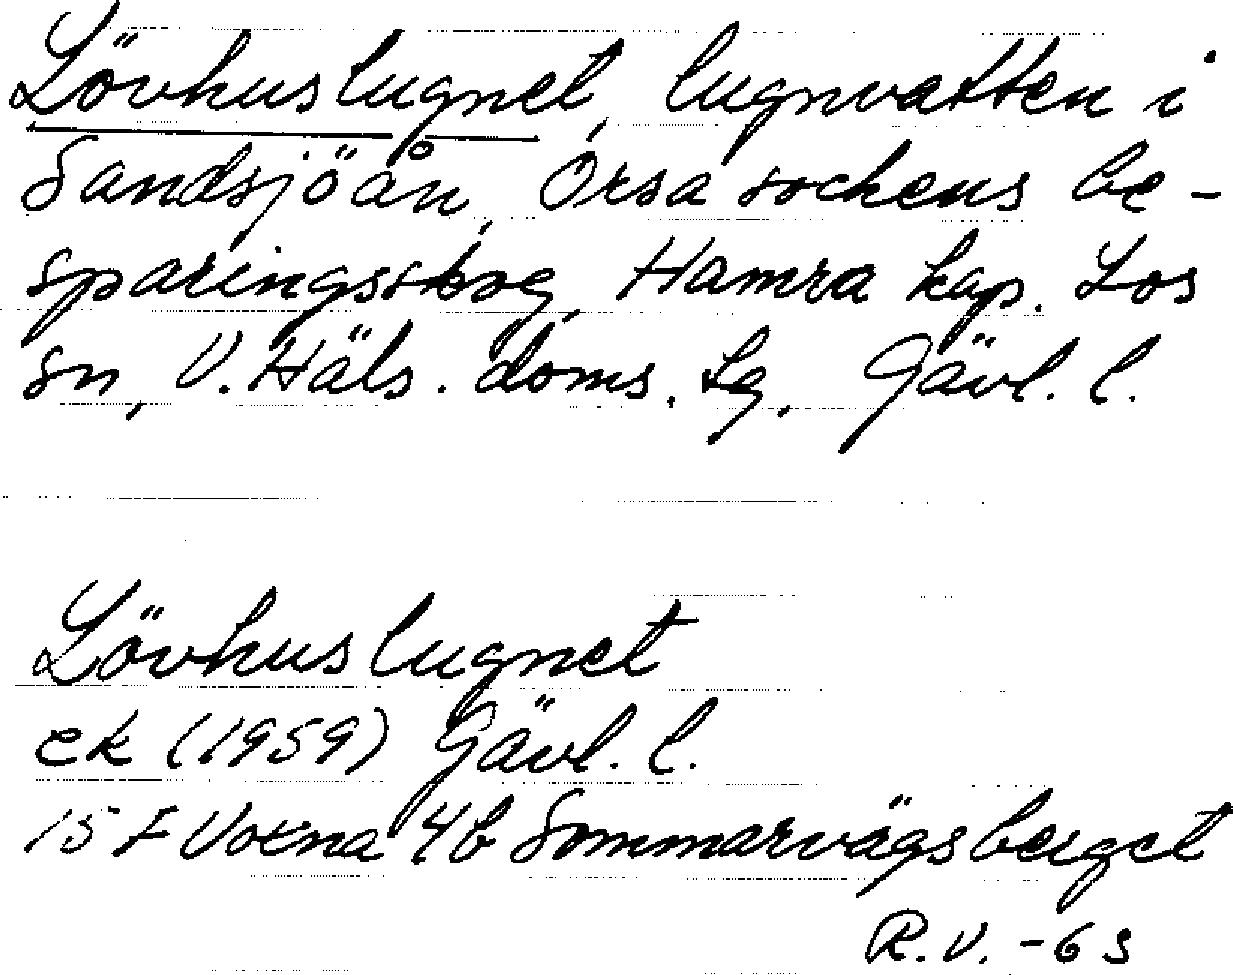 Lövhuslugnet, lugnvatten i
Sandsjöån, Orsa sockens be-
sparingsskog, Hamra kap. Los
sn, V. Häls. doms. Lg, Gävl. l.
Lövhuslugnet
ek (1959) Gävl. l.
15 F Voxna 4b Sommarvägsberget
R.V. -63